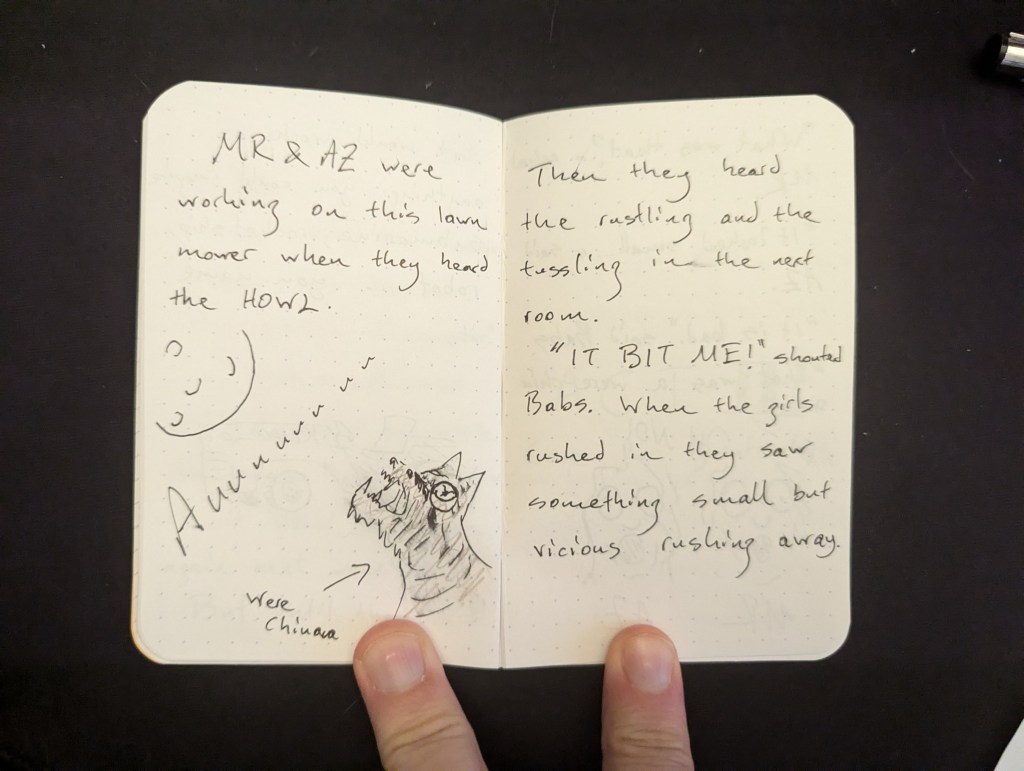 MR & AZ were
working on this lawn
mower when they heard
the HOWL.
Auuuuuuuuu
Were
Then they heard
the rustling and the
tussling in the next
room.
"IT BIT ME!" shouted
Babs. When the girls
rushed in they saw
something small but
vicious rushing away.